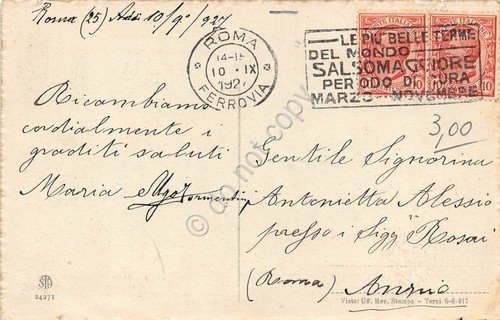 Roma (25) Addì 10/9°/927
ROMA
14-15
10 · IX
192
FERROVIA
LE PIÙ BELLE TERME
DEL MONDO
SALSOMAGGIORE
PERIODO DI CURA
MARZO - NOVEMBRE
POSTE ITALIANE
10
10
3,00
Ricambiamo
cordialmente i
graditi saluti
Maria e Ugo
Gentile Signorina
Antonietta Alessio
presso i Sigg Rosai
(Roma) Anzio
do not copy
STA
24271
Visto: Uff. Rev. Stampa - Terni 6-6-927